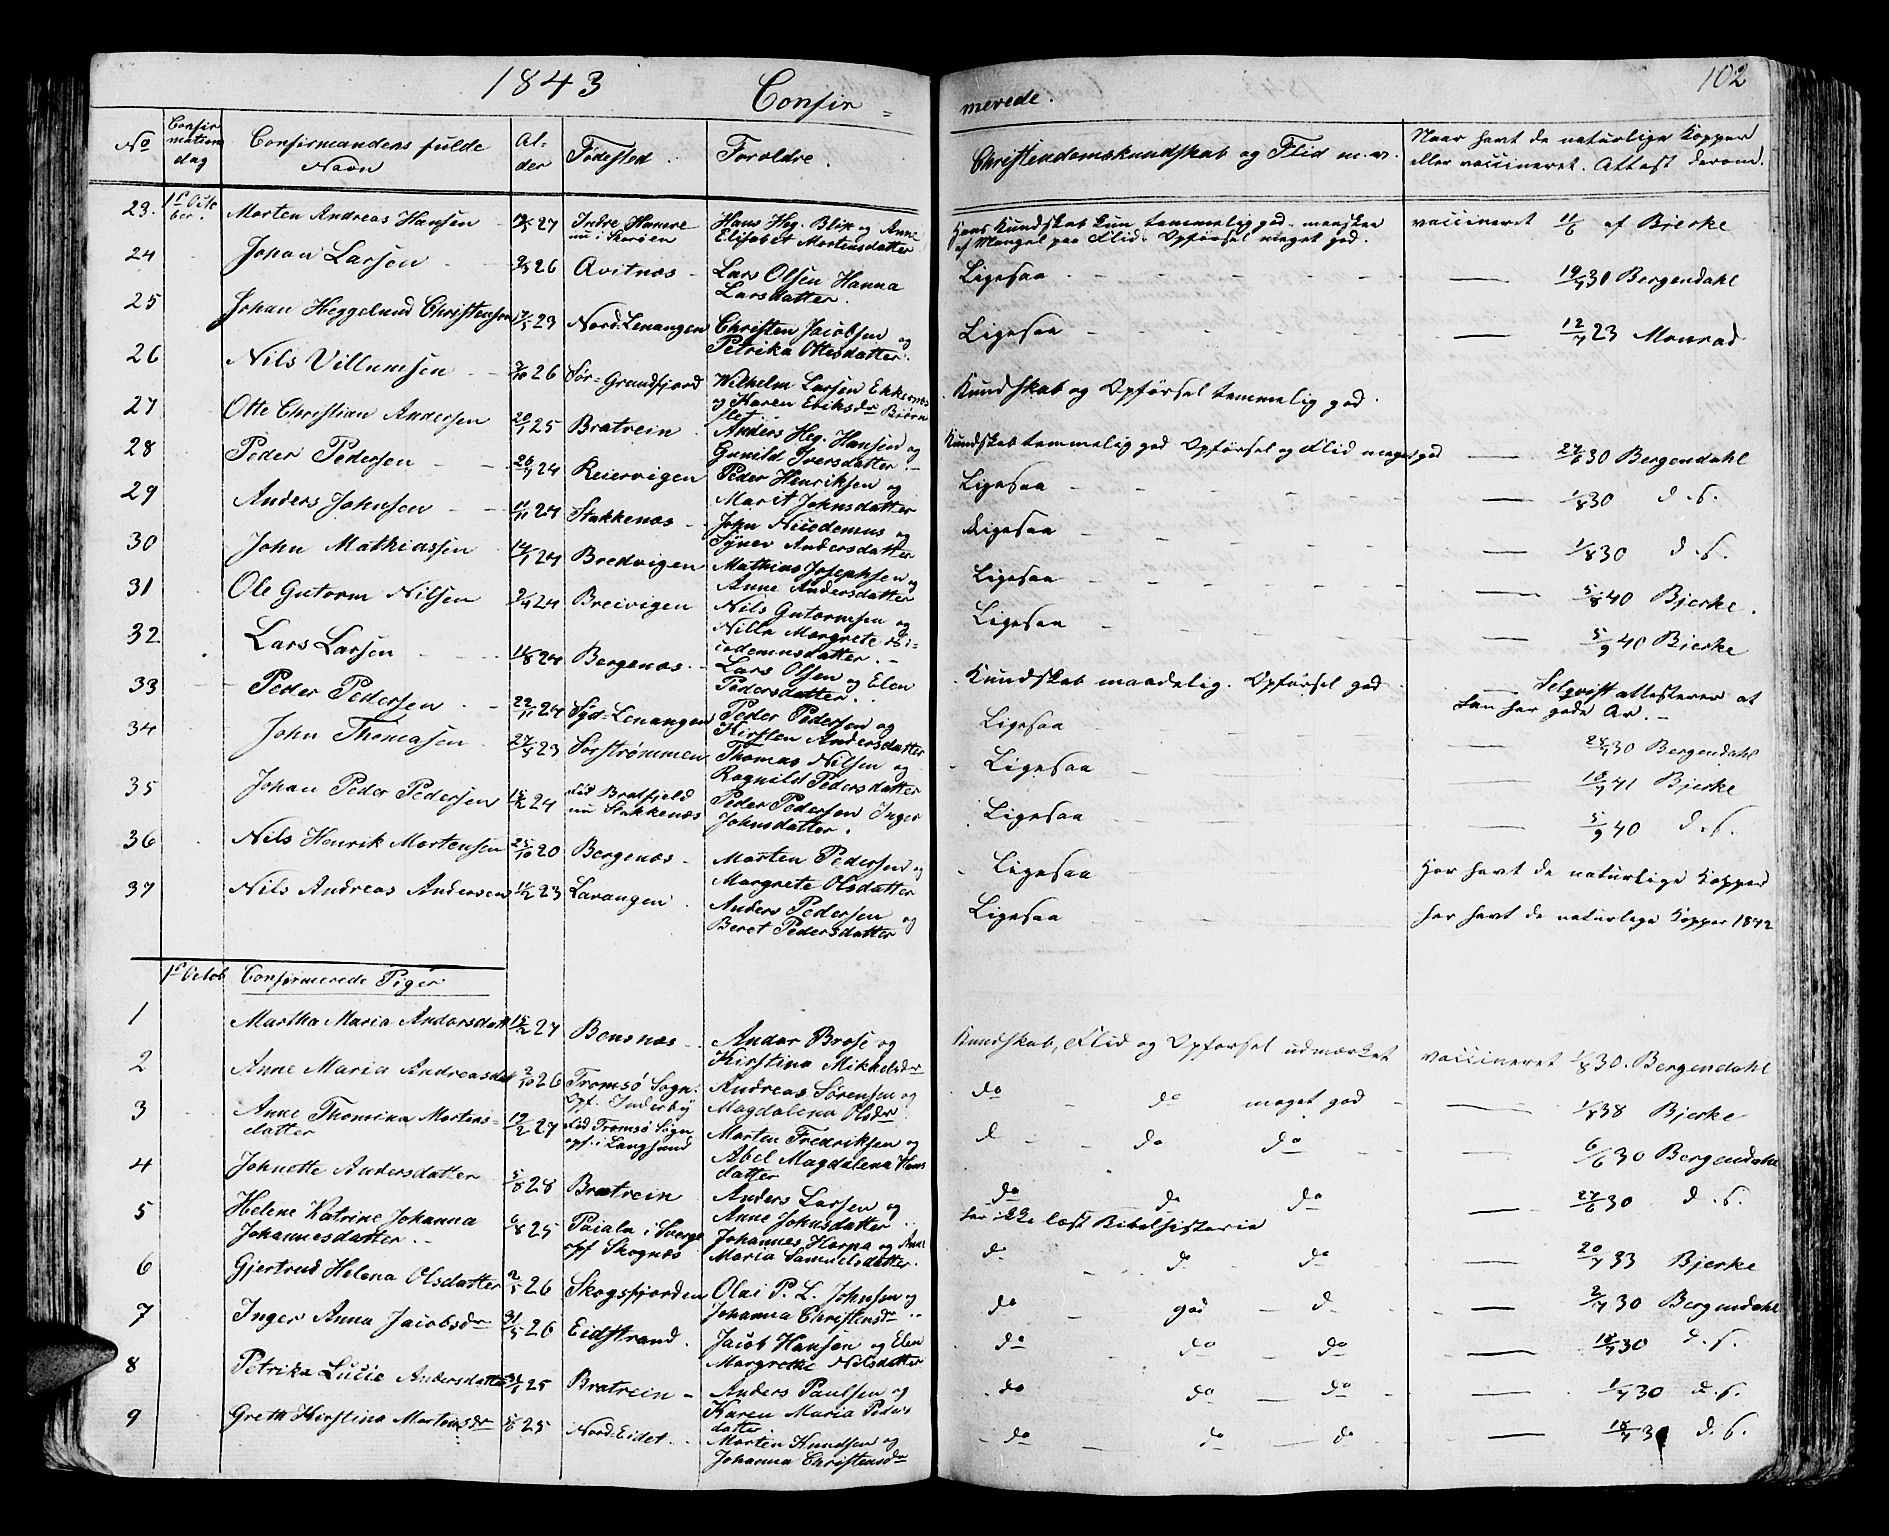 1843
Confir=
merede.
102
No
Confir
mations
dag
Confirmandens fulde
Navn
Al-
der
Fødested.
Foroldre.
Christendomskundskab og Flid m. v.
Naar havt de naturlige Kopper
eller vaccineret. Attest derom.
23. 1ste Octo
ber. Morten Andreas Hansen 27 Indre Hamre
nu i Skorøen Hans Heg. Blix og Anne
Elisabet Mortensdatter Hans Kundskab kun temmelig god - maaskee
af Mangel paa Flid. Opførsel meget god. vaccineret 11/6 af Bjerke
24 Johan Larsen 26 Avitnæs Lars Olsen Hanna
Larsdatter. Ligesaa 19/7 30 Bergendahl
25 Johan Heggelund Christensen 23 Nord-Lenangen Christen Jacobsen og
Petrika Ottesdatter. Ligesaa 12/7 23 Monrad
26 Nils Villumsen 26 Sør-Grundfjord Wilhelm Larsen Ekkernes
og Karen Eriksdr Kundskab og Opførsel temmelig god.
27 Otte Christian Andersen 20/1 25 Bratrein Anders Heg. Hansen og
Gunild Iversdatter. Kundskab temmelig god Opførsel og Flid meget god 27/6 30 Bergendahl
28 Peder Pedersen 24 Reiervigen Peder Henriksen og
Marit Johnsdatter Ligesaa 1/8 30 d. S.
29 Anders Johnsen 24 Stakkenæs John Nicodemus og
Andersdatter Ligesaa 1/8 30 d. S.
30 John Mathiassen 14/1 24 Bredvigen Mathias Josephsen og
Anne Andersdatter Ligesaa 5/8 40 Bjerke.
31 Ole Gutorm Nilsen 24 Breivigen Nils Gutormsen og
Nilla Margrete Ni-
codemusdatter. Ligesaa 5/9 40 Bjerke
32 Lars Larsen 24 Bergenæs Lars Olsen og Elen
Pedersdatter. Kundskab maadelig. Opførsel god attesterer at
han har gode Ar.
33 Peder Pedersen 22/11 24 Syd-Lenangen Peder Pedersen og
Kirsten Andersdatter Ligesaa 30 Bergendahl
34 John Thomasen 23 Sørstrømmen Thomas Nilsen og
Ragnild Pedersdatter Ligesaa 41 Bjerke
35 Johan Peder Pedersen 24 Bratfjeld
nu Stakkenæs Peder Pedersen Inger
Johnsdatter. Ligesaa 5/9 40 d. S.
36 Nils Henrik Mortensen 25/10 20 Bergenæs Morten Pedersen og
Margrete Olsdatter Ligesaa Har havt de naturlige Kopper
37 Nils Andreas Andersen 23 Lavangen Anders Pedersen og
Beret Pedersdatter Ligesaa har havt de naturlige Kopper 1842
1ste Octob Confirmerede Piger
1 Martha Maria Andorsdatt 27 Bensnæs Andor Brose og
Kirstina Mikkelsdr Kundskab, Flid og Opførsel udmærket vaccineret 1/8 30. Bergendahl
2 Anne Maria Andreasdat 26 Tromsø Sogn.
opf. Inderby Andreas Sørensen og
Magdalena Olsdr. do do meget god 1/8 38 Bjerke
3 Anne Thomina Mortens-
datter 27 Tromsø Sogn
opf. i Langsund Morten Fredriksen og
Abel Magdalena Hans
datter d do do 6/6 30 Bergendahl
4 Johnette Andersdatter 5/8 28 Bratrein Anders Larsen og
Anne Johnsdatter do do do 27/6 30 d. S.
5 Helene Katrine Johanna
Johannesdatter 6/8 25 Paiala i Sverge
opf Skognæs Johannes Harpa og Anne
Maria Samuelsdatter. har ikke læst Bibelhistorie
do do do 20/7 33 Bjerke
6 Gjertrud Helena Olsdatter 26 Skogsfjorden Olai P. L. Johnsen og
Johanna Christensdr do god do 2/7 30 Bergendahl
7 Inger Anna Jacobsdr 31/5 26 Eidstrand. Jacob Hansen og Elen
Margrethe Nilsdatter do do do 30 d. S.
8 Petrika Lucie Andersdatter 25 Bratrein Anders Paulsen og
Karen Maria Peders
datter. do do do 1/7 30 d. S.
9 Greth Kirstina Mortensdr 25 Nord-Eidet Morten Knudsen og
Johanna Christensdr do do do d. S.